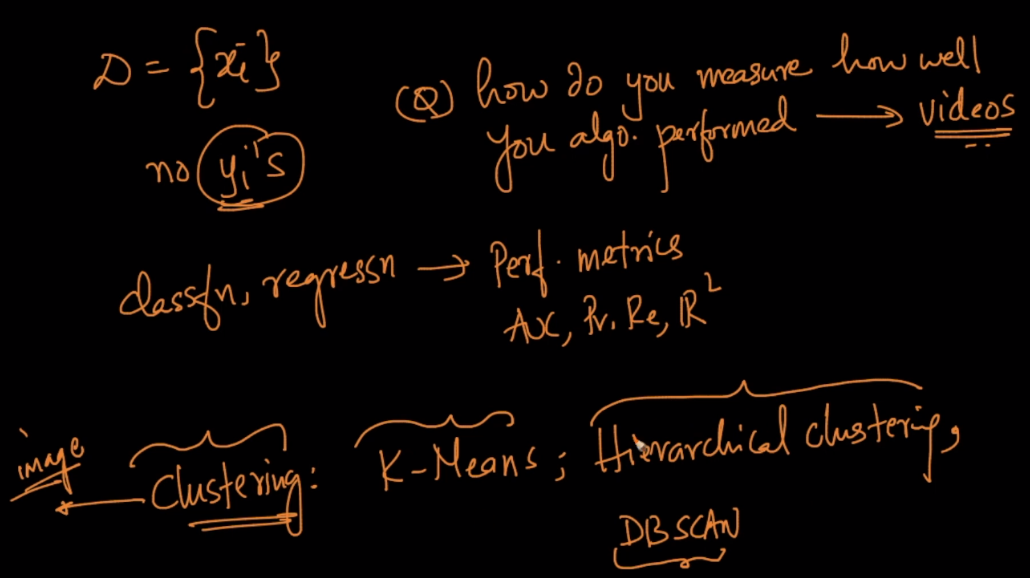 D = {xi}
(Q) how do you measure how well
you algo. performed → videos
no yi's
classfn, regressn → Perf. metrics
AUC, Pr, Re, R²
image ← Clustering: K-Means; Hierarchical clustering,
DBSCAN